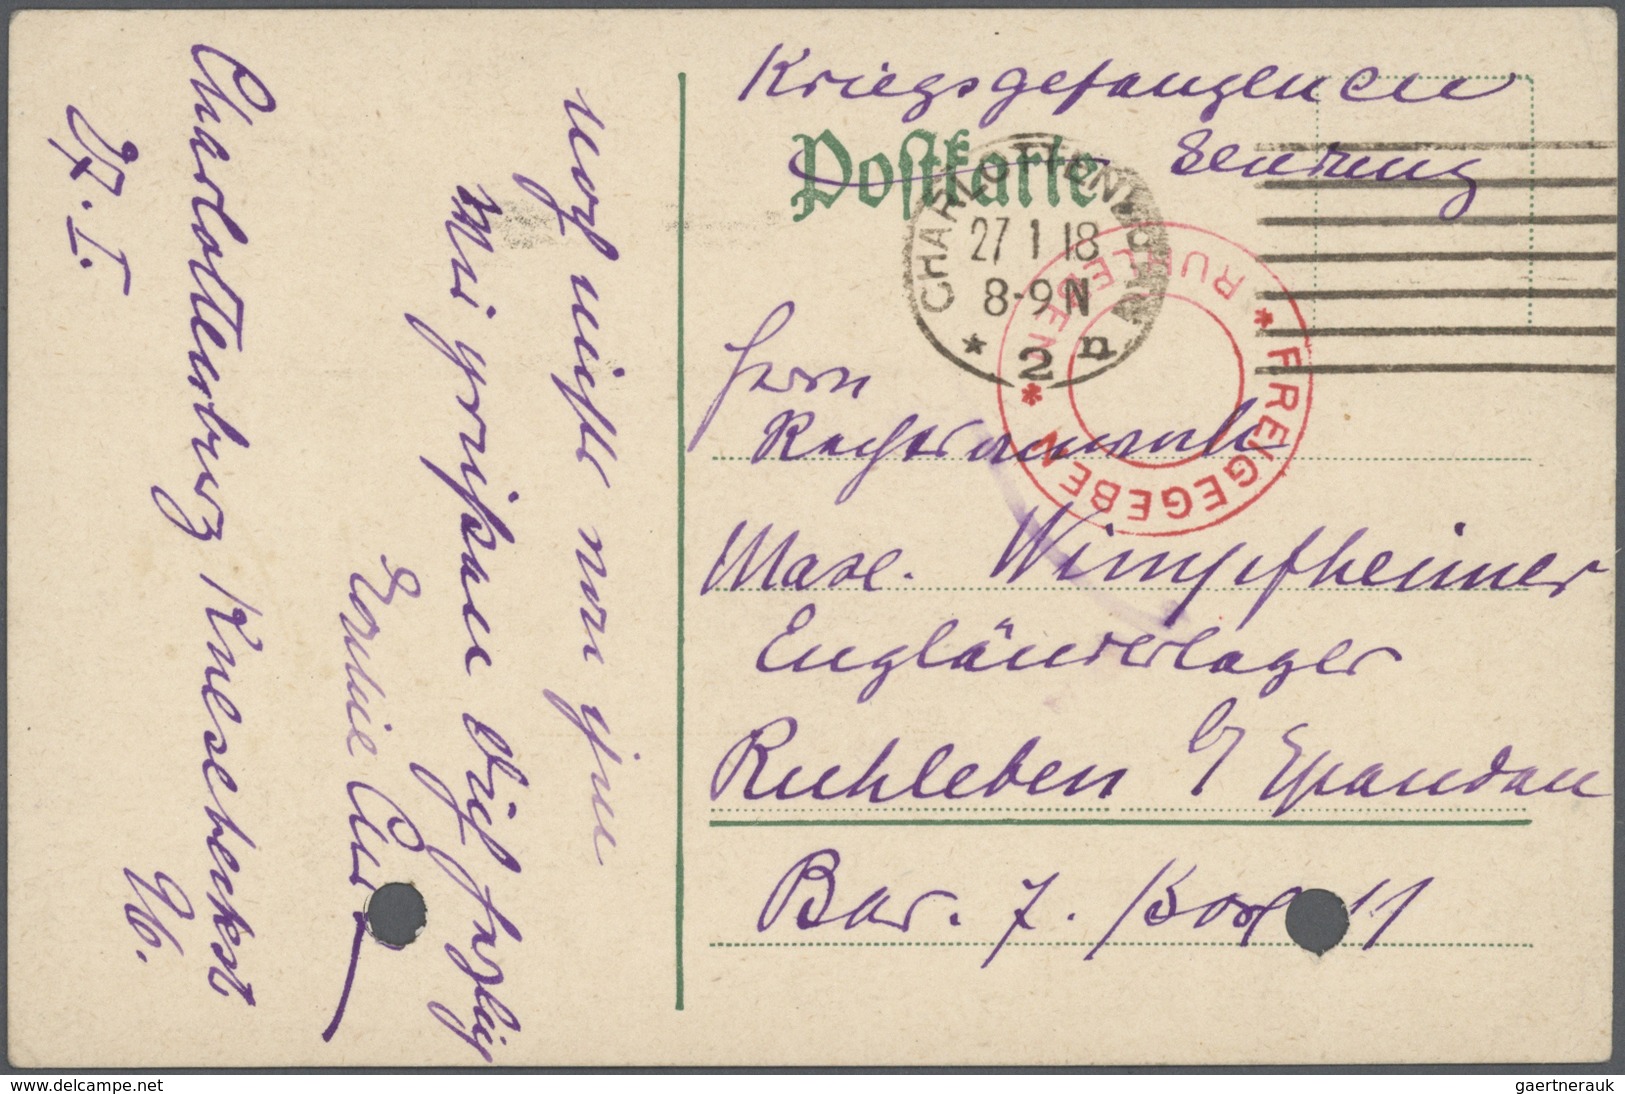 Kriegsgefangenen
Sendung
Postkarte
CHARLOTTENBURG
27 1 18
8-9 N
* 2 n
* FREIGEGEBEN * RUHLEBEN
Herrn
Rechtsanwalt
Max. Wimpfheimer
Engländerlager
Ruhleben b/ Spandau
Bar. 7. Box 11
noch nichts von
Wir grüßen Dich herzlich
Charlottenburg Knesebeckst
96.
27. I.
www.delcampe.net
gaertnerauk